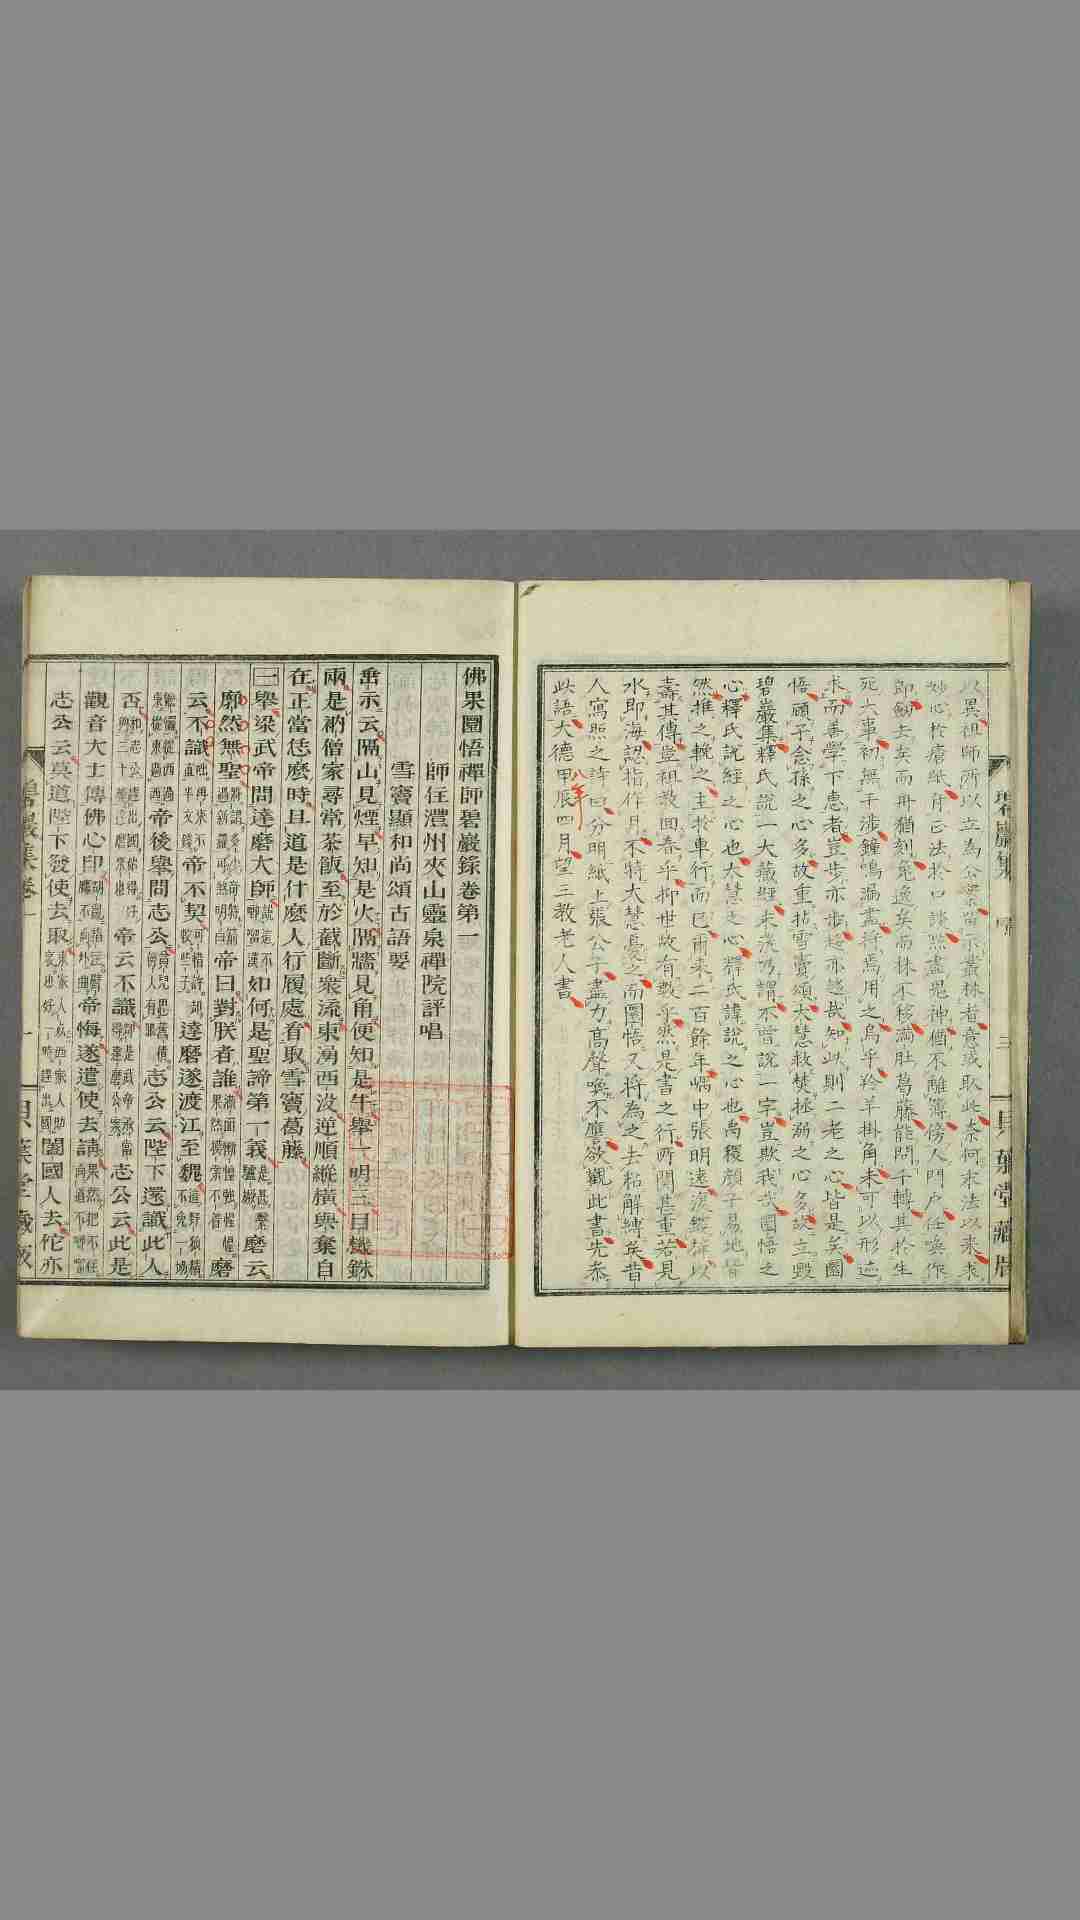 碧巖集 序 三 貝葉堂藏版
以異祖師所以立為公案留示叢林者意或取此柰何求法以來求
妙心於瘡紙付正法於口談點盡鬼神猶不離簿傍人門戶任喚作
郎劍去矣而舟猶刻兔逸矣而株不移滿肚葛藤能問千轉其於生
死大事初無干涉鐘鳴漏盡將焉用之烏乎羚羊掛角未可以形迹
求而善學下惠者豈步亦步趨亦趨哉知此則二老之心皆是矣圜
悟顧子念孫之心多故重拈雪竇頌大慧救焚拯溺之心多故立毀
碧巖集釋氏說一大藏經末後乃謂不曾說一字豈欺我哉圜悟之
心釋氏說經之心也大慧之心釋氏諱說之心也禹稷顏子易地皆
然推之輓之主於車行而已爾來二百餘年嵎中張明遠復鋟梓以
壽其傳豈祖教回春乎抑世故有數乎然是書之行所關甚重若見
水即海認指作月不特大慧憂之而圜悟又將為之去粘解縛矣昔
人寫照之詩曰分明紙上張公子盡力高聲喚不譍欲觀此書先參
此語大德甲辰四月望三教老人書
八年
佛果圜悟禪師碧巖錄卷第一
師住澧州夾山靈泉禪院評唱
雪竇顯和尚頌古語要
垂示云隔山見煙早知是火隔牆見角便知是牛舉一明三目機銖
兩是衲僧家尋常茶飯至於截斷衆流東湧西沒逆順縱橫與奪自
在正當恁麼時且道是什麼人行履處看取雪竇葛藤
一舉梁武帝問達磨大師說這不唧𠺕漢如何是聖諦第一義是甚繫驢橛磨云
廓然無聖將謂多少奇特箭過新羅可煞明白帝曰對朕者誰滿面慚惶強惺惺果然摸索不著磨
云不識咄再來不直半文錢帝不契可惜許却較些子達磨遂渡江至魏這野狐精不免一場
帝後舉問志公貧兒思舊債傍人有眼志公云陛下還識此人
否和志公趕出國始得好與三十棒達磨來也帝云不識却是武帝承當得達磨公案志公云此是
觀音大士傳佛心印胡亂指注臂膊不向外曲帝悔遂遣使去請果然把不住向道不唧𠺕
志公云莫道陛下發使去取東家人死西家人助哀也好一時趕出國闔國人去佗亦
碧巖集卷一 一 貝葉堂藏版